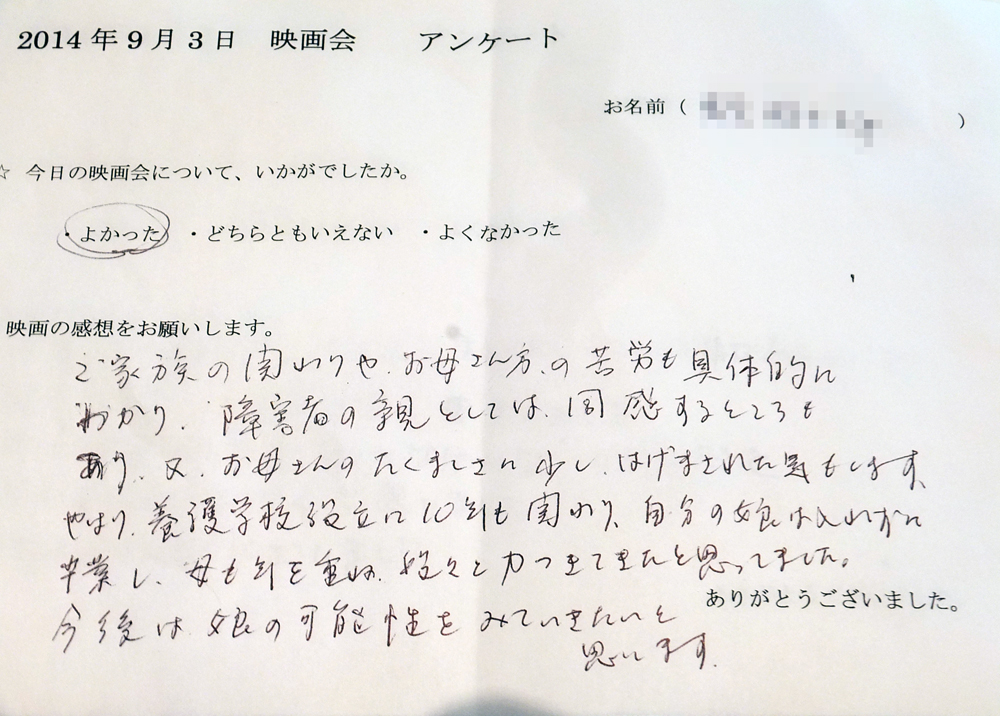 2014年9月3日　映画会　　アンケート
お名前（　　　　）
☆ 今日の映画会について、いかがでしたか。
・よかった　・どちらともいえない　・よくなかった
映画の感想をお願いします。
ご家族の関わりや、お母さん方、の苦労も具体的に
わかり、障害者の親としては、同感するところも
あり、又、お母さんのたくましさに少し、はげまされた気もします。
やはり、養護学校設立に10年も関わり、自分の娘は入れずに
卒業し、母も年を重ね、段々と力つきてきたと思ってました。
ありがとうございました。
今後は娘の可能性をみていきたいと
思います。